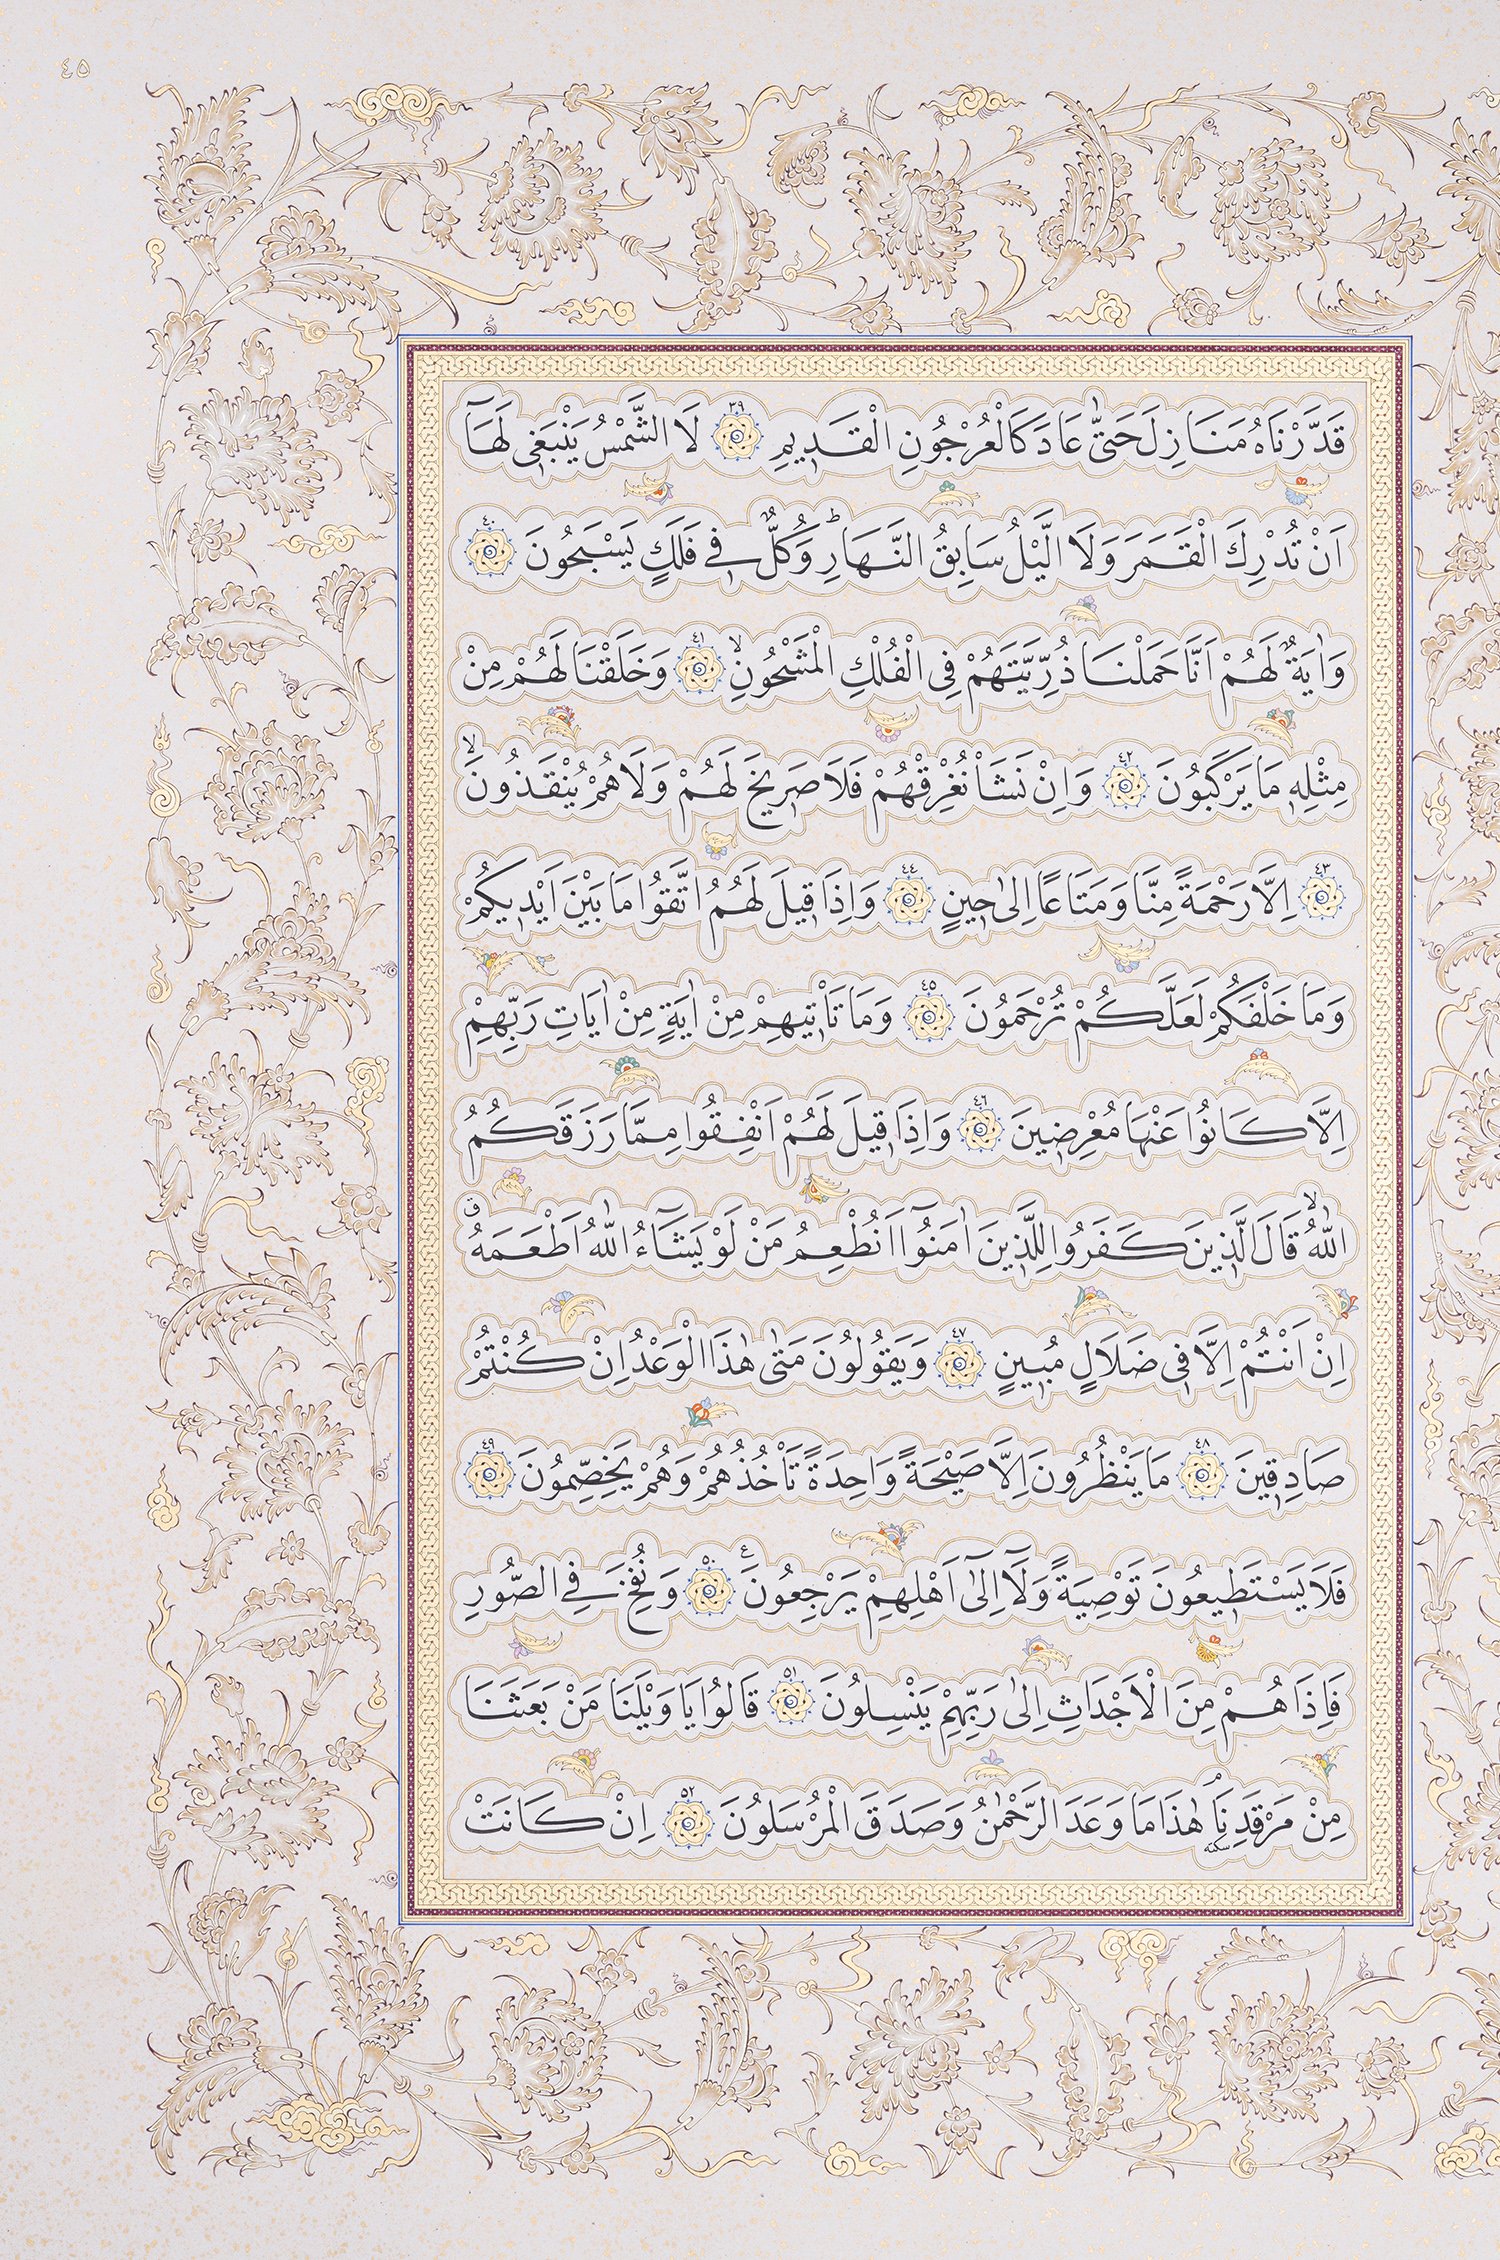 ٤٥
قَدَّرْنَاهُ مَنَازِلَ حَتّٰى عَادَ كَالْعُرْجُونِ الْقَدٖيمِ ٣٩ لَا الشَّمْسُ يَنْبَغٖى لَهَٓا
اَنْ تُدْرِكَ الْقَمَرَ وَلَا الَّيْلُ سَابِقُ النَّهَارِؕ وَكُلٌّ فٖى فَلَكٍ يَسْبَحُونَ ٤٠
وَاٰيَةٌ لَهُمْ اَنَّا حَمَلْنَا ذُرِّيَّتَهُمْ فِى الْفُلْكِ الْمَشْحُونِۙ ٤١ وَخَلَقْنَا لَهُمْ مِنْ
مِثْلِهٖ مَا يَرْكَبُونَ ٤٢ وَاِنْ نَشَاْ نُغْرِقْهُمْ فَلَا صَرٖيخَ لَهُمْ وَلَا هُمْ يُنْقَذُونَۙ
٤٣ اِلَّا رَحْمَةً مِنَّا وَمَتَاعًا اِلٰى حٖينٍ ٤٤ وَاِذَا قٖيلَ لَهُمُ اتَّقُوا مَا بَيْنَ اَيْدٖيكُمْ
وَمَا خَلْفَكُمْ لَعَلَّكُمْ تُرْحَمُونَ ٤٥ وَمَا تَاْتٖيهِمْ مِنْ اٰيَةٍ مِنْ اٰيَاتِ رَبِّهِمْ
اِلَّا كَانُوا عَنْهَا مُعْرِضٖينَ ٤٦ وَاِذَا قٖيلَ لَهُمْ اَنْفِقُوا مِمَّا رَزَقَكُمُ
اللّٰهُۙ قَالَ الَّذٖينَ كَفَرُوا لِلَّذٖينَ اٰمَنُٓوا اَنُطْعِمُ مَنْ لَوْ يَشَٓاءُ اللّٰهُ اَطْعَمَهُۗ
اِنْ اَنْتُمْ اِلَّا فٖى ضَلَالٍ مُبٖينٍ ٤٧ وَيَقُولُونَ مَتٰى هٰذَا الْوَعْدُ اِنْ كُنْتُمْ
صَادِقٖينَ ٤٨ مَا يَنْظُرُونَ اِلَّا صَيْحَةً وَاحِدَةً تَاْخُذُهُمْ وَهُمْ يَخِصِّمُونَ ٤٩
فَلَا يَسْتَطٖيعُونَ تَوْصِيَةً وَلَٓا اِلٰٓى اَهْلِهِمْ يَرْجِعُونَ ع ٥٠ وَنُفِخَ فِى الصُّورِ
فَاِذَا هُمْ مِنَ الْاَجْدَاثِ اِلٰى رَبِّهِمْ يَنْسِلُونَ ٥١ قَالُوا يَا وَيْلَنَا مَنْ بَعَثَنَا
مِنْ مَرْقَدِنَاۢ سكته هٰذَا مَا وَعَدَ الرَّحْمٰنُ وَصَدَقَ الْمُرْسَلُونَ ٥٢ اِنْ كَانَتْ